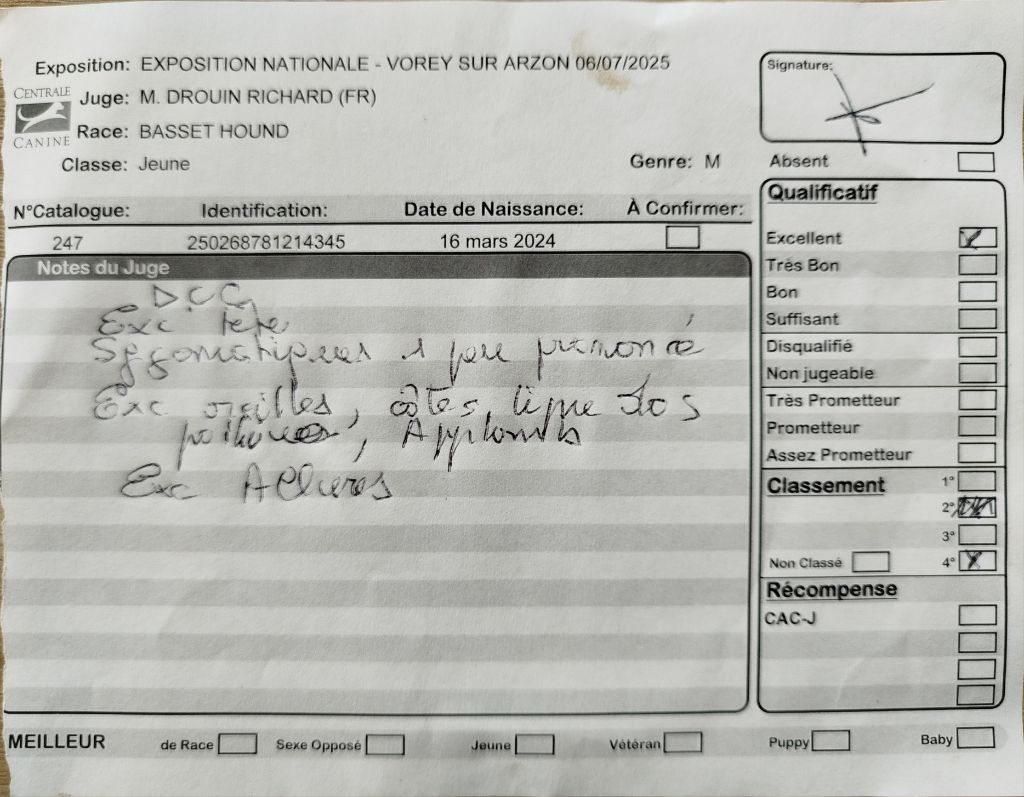 Exposition: EXPOSITION NATIONALE - VOREY SUR ARZON 06/07/2025
CENTRALE
CANINE
Juge: M. DROUIN RICHARD (FR)
Race: BASSET HOUND
Classe: Jeune Genre: M
Signature:
Absent
N°Catalogue: Identification: Date de Naissance: À Confirmer:
247 250268781214345 16 mars 2024
Notes du Juge
D.C.C
Exc tête
Zygomatiques 1 peu prononcé
Exc oreilles, côtes, ligne dos
poitrine, Applombs
Exc Allures
Qualificatif
Excellent
Très Bon
Bon
Suffisant
Disqualifié
Non jugeable
Très Prometteur
Prometteur
Assez Prometteur
Classement 1°
2°
3°
Non Classé 4°
Récompense
CAC-J
MEILLEUR de Race Sexe Opposé Jeune Vétéran Puppy Baby